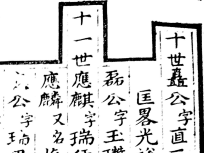 十世矗公字直
匡畧光
磊公字玉
十一世應麒字瑞
應麟又名
公字瑞